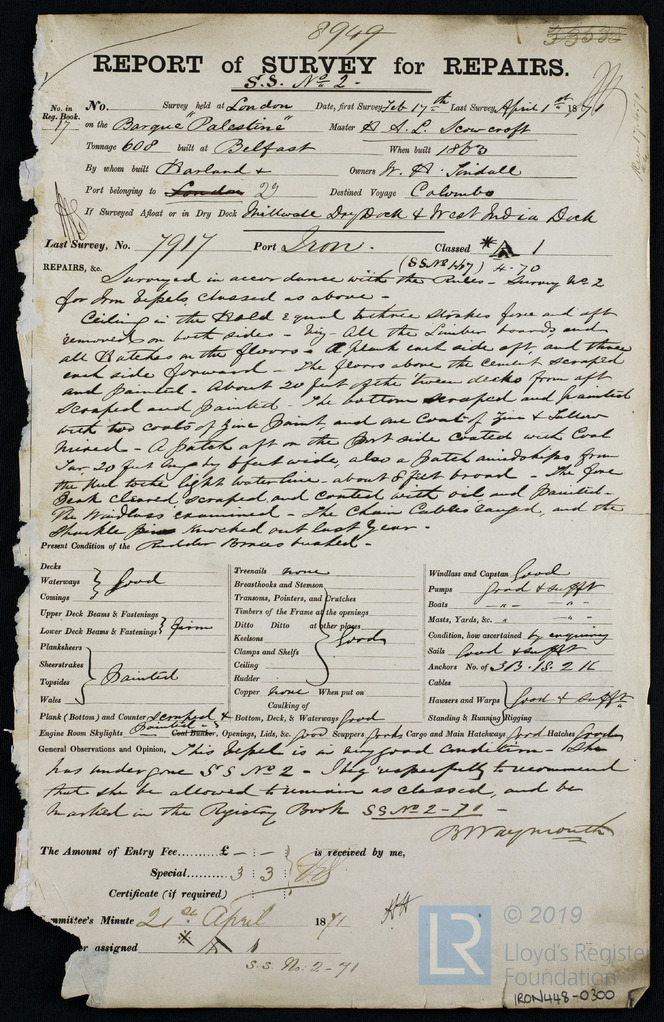 8949
REPORT of SURVEY for REPAIRS.
S.S. No 2.
No. in Reg. Book. 17
No. Survey held at London Date, first Survey Feb 17th Last Survey, April 1st 1871
on the Barque "Palestine" Master H. A. L. Scowcroft
Tonnage 608 built at Belfast When built 1863
By whom built Harland & Owners W. H. Tindall
Port belonging to London 29 Destined Voyage Colombo
If Surveyed Afloat or in Dry Dock Millwall Dry Dock & West India Dock
Last Survey, No. 7917 Port Iron. Classed *A 1
(SS No 1-67) 4-70
REPAIRS, &c. Surveyed in accordance with the Rules - Survey No 2
for Iron Vessels, classed as above -
Ceiling in the Hold equal to three strakes fore and aft
removed on both sides - Viz - All the Limber boards and
all Hatches on the floors - A plank each side aft, and three
each side forward - The floors above the cement scraped
and painted - About 20 feet of the tween decks from aft
scraped and painted - The bottom scraped and painted
with two coats of Zinc Paint, and one coat of Zinc & Tallow
mixed - A patch aft on the Port side coated with Coal
Tar, 20 feet long by 6 feet wide, also a patch amidships from
the keel to the light waterline - about 8 feet broad - The fore
Peak cleared, scraped, and coated with oil and painted -
The Windlass examined - The Chain Cables ranged, and the
Shackle pins knocked out last Year -
Present Condition of the Rudder Braces bushed -
Decks
Waterways } Good
Comings
Upper Deck Beams & Fastenings
Lower Deck Beams & Fastenings } Firm
Planksheers
Sheerstrakes
Topsides } Painted
Wales
Plank (Bottom) and Counter scraped & painted
Treenails none
Breasthooks and Stemson
Transoms, Pointers, and Crutches
Timbers of the Frame at the openings
Ditto Ditto at other places
Keelsons } Good
Clamps and Shelfs
Ceiling
Rudder
Copper none When put on
Caulking of
Bottom, Deck, & Waterways Good
Windlass and Capstan Good
Pumps Good & sufft
Boats -"- -"-
Masts, Yards, &c. -"- -"-
Condition, how ascertained by enquiry
Sails Good & sufft
Anchors No. of 3B. 1S. 2 K
Cables
Hausers and Warps } Good & sufft
Standing & Running Rigging
Engine Room Skylights Coal Bunker, Openings, Lids, &c. Good Scuppers Good Cargo and Main Hatchways Good Hatches Good
General Observations and Opinion, This Vessel is in very good condition - She
has undergone S S No 2 - I beg respectfully to recommend
that she be allowed to remain as classed, and be
marked in the Registry Book SS No 2-71 -
B Waymouth
The Amount of Entry Fee.......... £ - : - : is received by me,
Special.......... 3 : 3 :
Certificate (if required)
mmittee's Minute 21st April 1871
er assigned *A 1
S.S. No. 2-71
LR
© 2019
Lloyd's Register
Foundation
IRON448-0300